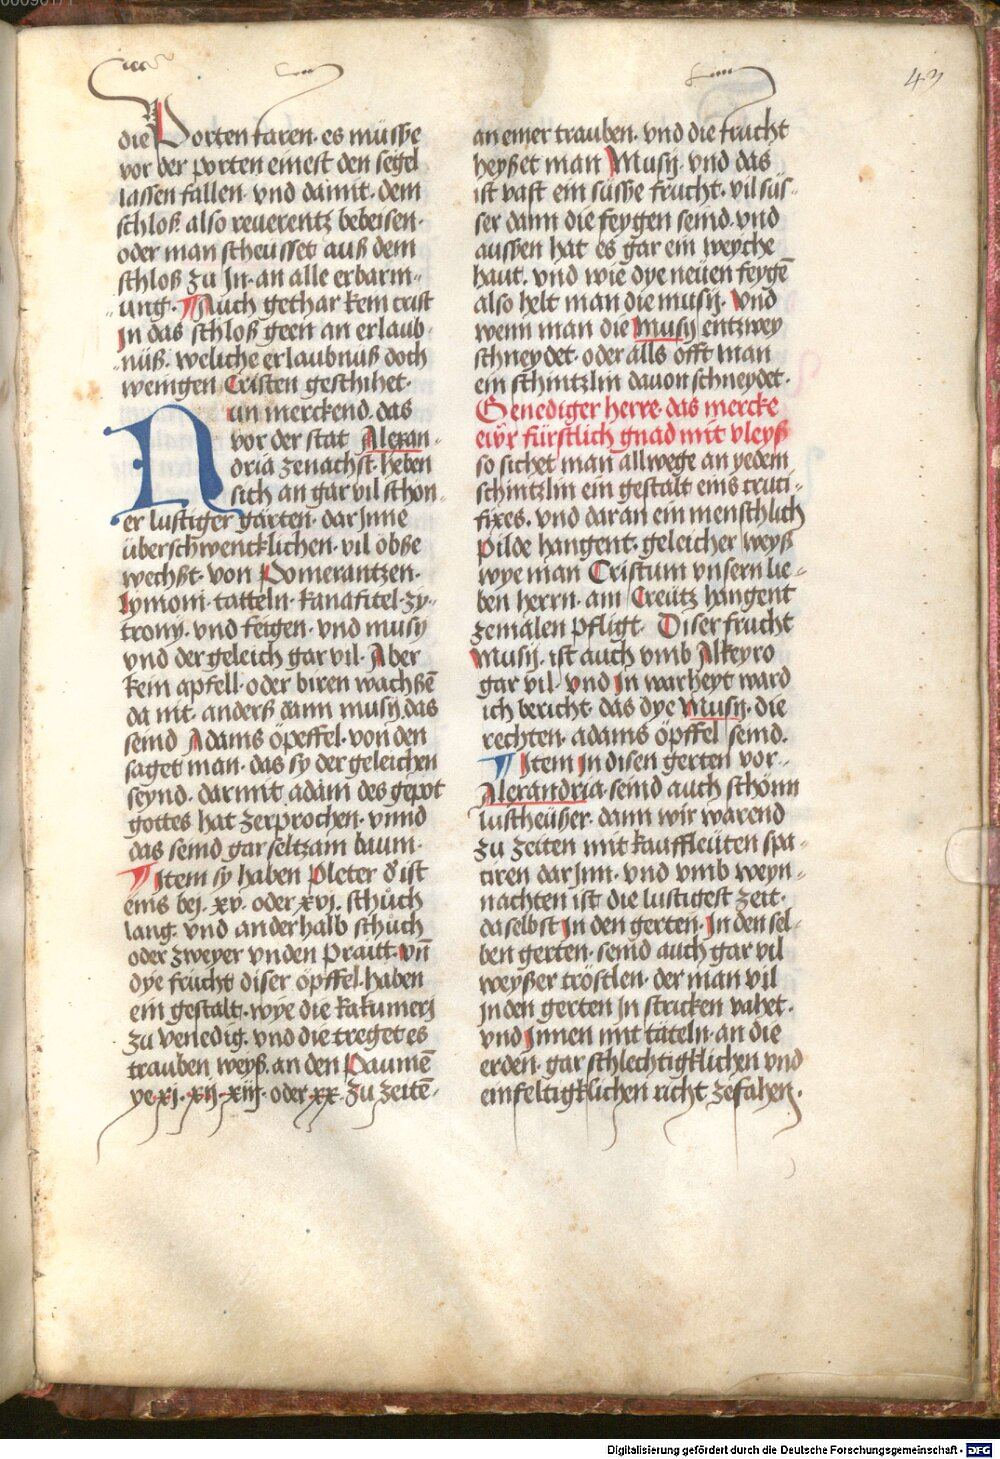 43
die Porten faren· es müsse
vor der porten einest den segel
lassen fallen· vnd damit· dem
schloß also reuerentz bebeisen·
oder man scheusset auß dem
schloß zu Jn· an alle erbarm-
ung· Auch gethar kein crist
Jn das schloß geen an erlaub-
nüß· weliche erlaubnuß doch
wenigen Cristen geschihet·
Nun merckend· das
vor der stat Alexan-
dria zenachst· heben
sich an gar vil schön-
er lustiger gärten· dar Jnne
überschwencklichen· vil obße
wechßt· von Pomerantzen·
lymoni· tatteln· kanafitel· zy-
trony· vnd feigen· vnd musy
vnd der geleich gar vil· Aber
kein apfell· oder biren wachßē
da nit· anderß dann musy das
seind Adams öpeffel· von den
saget man· das sy der geleichen
seynd· dar mit adam des gepot
gottes hat zerprochen· vnnd
das seind gar seltzam baum·
Jtem sy haben Pleter d' ist
eins bej· xv· oder xvj· schüch
lang· vnd anderhalb schüch
oder zweyer vnden Praitt· vn̄
dye frücht diser öpffel· haben
ein gestalt· wye die kakumerj
zu venedig· vnd die treget es
trauben weyß· an den Paumē
ye xj· xij· xiij· oder xx· zu zeitē-
an einer trauben· vnd die frucht
heyßet man Musij· vnd das
ist vast ein süsse frucht· vil süs-
ser dann die feygen seind· vnd
aussen hat es gar ein weyche
haut· vnd wie dye neüen feygē
also helt man die musij· Vnd
wenn man die Musij entzwey
schneydet· oder alls offt man
ein schnitzlin dauon schneydet·
Genediger herre· das mercke
eiwr fürstlich gnad mit vleyß
so sichet man allwege an yedem
schnitzlin ein gestalt eins cruci-
fixes· vnd dar an ein menschlich
Pilde hangent· geleicher weyß
wye man Cristum vnsern lie-
ben herrn· am Creütz hangent
zemalen pfligt· Diser frucht
Musij· ist auch vmb Alkeyro
gar vil· vnd Jn warheyt ward
ich bericht· das dye Musij· die
rechten· adams öpffel seind·
Jtem Jn disen gerten vor-
Alexandria· seind auch schönn
lustheüßer· dann wir warend
zu zeiten mit kauffleüten spa-
tiren dar Jnn· vnd vmb weyn-
nachten ist die lustigest zeit·
da selbst Jn den gerten· Jn den sel-
ben gerten· seind auch gar vil
weysser tröstlen· der man vil
Jn den gerten Jn stricken vahet·
vnd Jnnen mit tateln· an die
erden· gar schlechtigklichen vnd
einfeltigklichen richt zefahen·
Digitalisierung gefördert durch die Deutsche Forschungsgemeinschaft - DFG